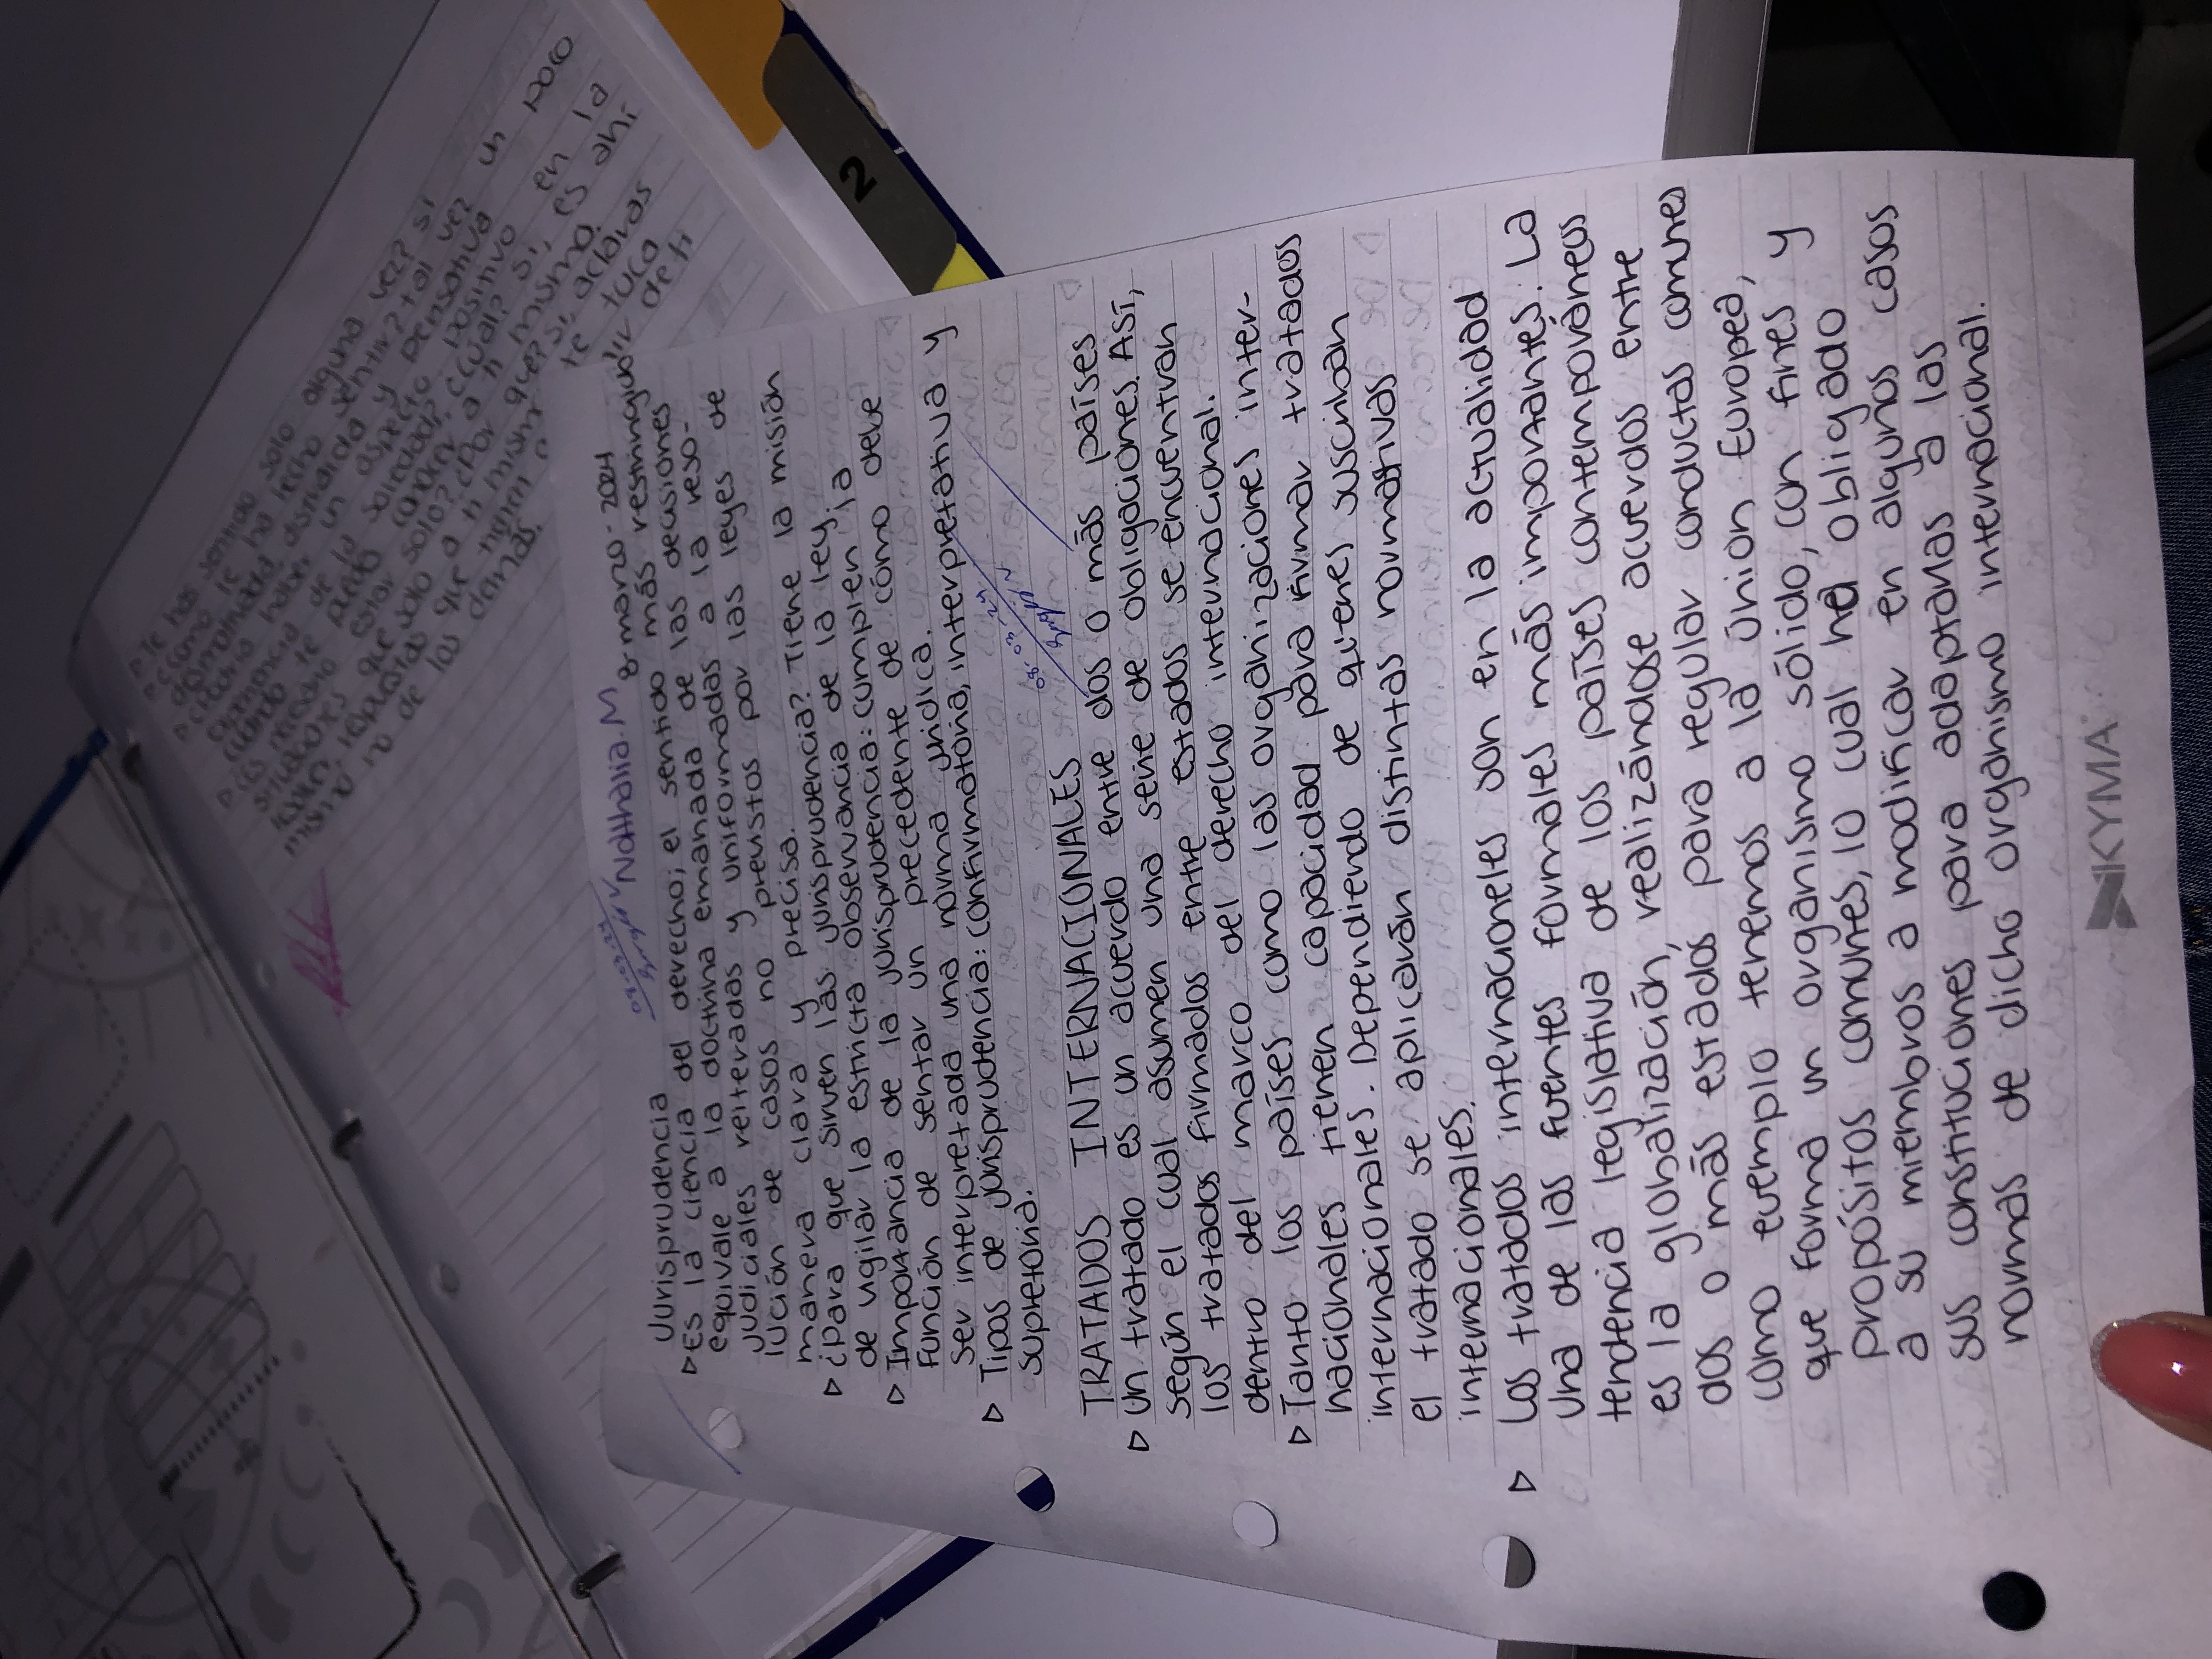 Jurisprudencia
Nathalia.M 8-marzo-2024
▷ Es la ciencia del derecho; el sentido más restringido
equivale a la doctrina emanada de las decisiones
judiciales reiteradas y uniformadas a la reso-
lución de casos no previstos por las leyes de
manera clara y precisa.
▷ ¿para que sirven las jurisprudencia? Tiene la misión
de vigilar la estricta observancia de la ley.
▷ Importancia de la jurisprudencia: cumplen la
función de sentar un precedente de cómo debe
ser interpretada una norma jurídica.
▷ Tipos de jurisprudencia: confirmatoria, interpretativa y
supletoria.
08-03-24
TRATADOS INTERNACIONALES
▷ Un tratado es un acuerdo entre dos o más países
según el cual asumen una serie de obligaciones. Así,
los tratados firmados entre estados se encuentran
dentro del marco del derecho internacional.
▷ Tanto los países como las organizaciones inter-
nacionales tienen capacidad para firmar tratados
internacionales. Dependiendo de quienes suscriban
el tratado se aplicarán distintas normativas
internacionales.
▷ Los tratados internacioneles son en la actualidad
una de las fuentes formales más importantes. La
tendencia legislativa de los países contemporáneos
es la globalización, realizándose acuerdos entre
dos o más estados para regular conductas comunes
como evemplo tenemos a la Unión Europea,
que forma un organismo sólido, con fines y
propósitos comunes, lo cual ha obligado
a su miembros a modificar en algunos casos
sus constituciones para adaptarlas a las
normas de dicho organismo internacional.
KYMA
2
▷ Te has sentido solo alguna vez? si
▷ ¿Cómo te ha hecho sentir? tal vez un poco
desanimada aburrida y pensativa
un aspecto positivo en la
de la soledad, ¿cuál? si, es ahi
cuando te puedo conocer a ti mismo.
estar solo? ¿Por qué? si, aclaras
que solo a ti mismo te tuco
que a
tienen de ti
mismo no de los demás.